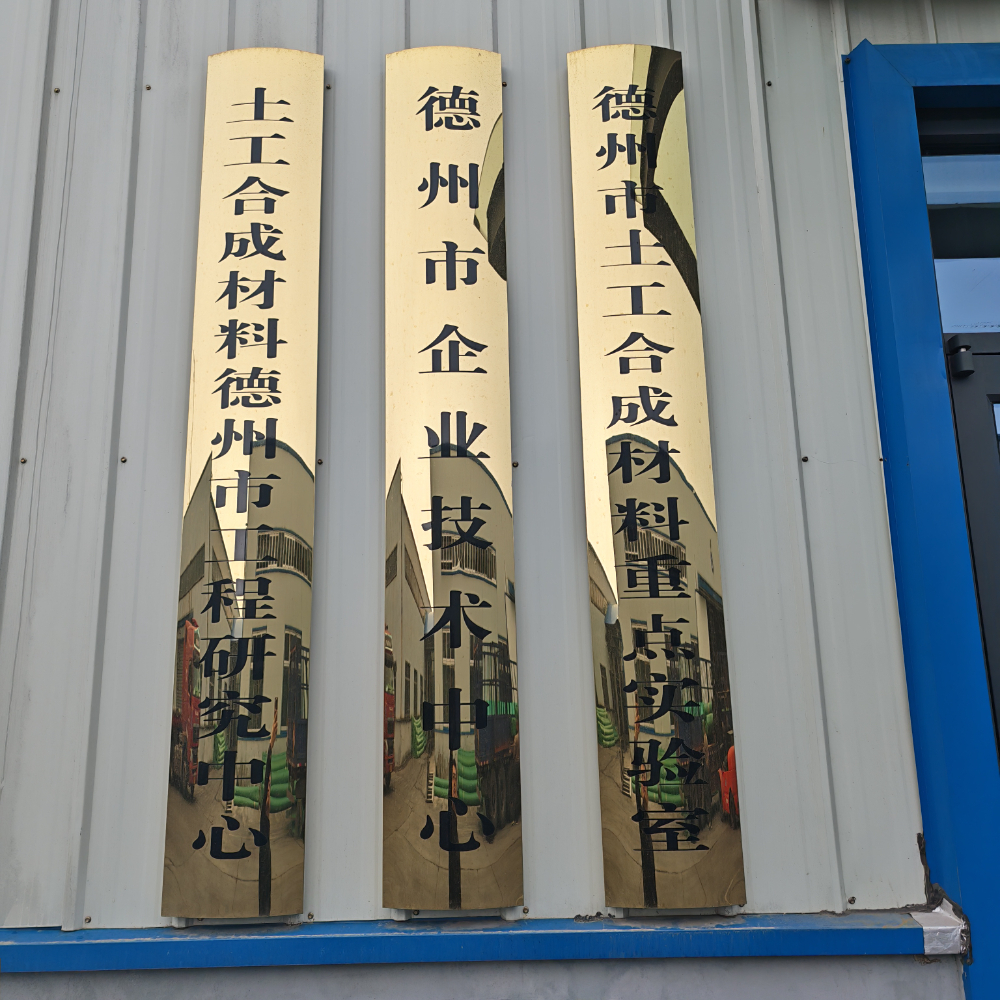 土工合成材料德州市工程研究中心
德州市企业技术中心
德州市土工合成材料重点实验室